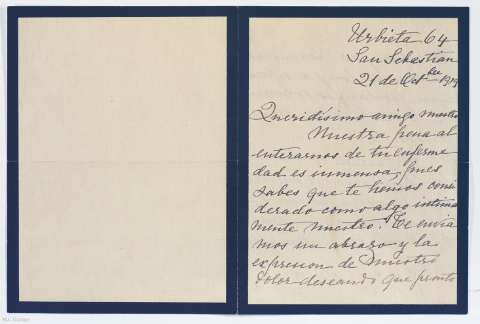 Urbieta 64
San Sebastián
21 de Octbre 1919
Queridísimo amigo nuestro
Nuestra pena al
enterarnos de tu enferme
dad es inmensa, pues
sabes que te hemos consi
derado como algo íntima
mente nuestro. Te envia
mos un abrazo y la
expresion de nuestro
dolor deseando que pronto